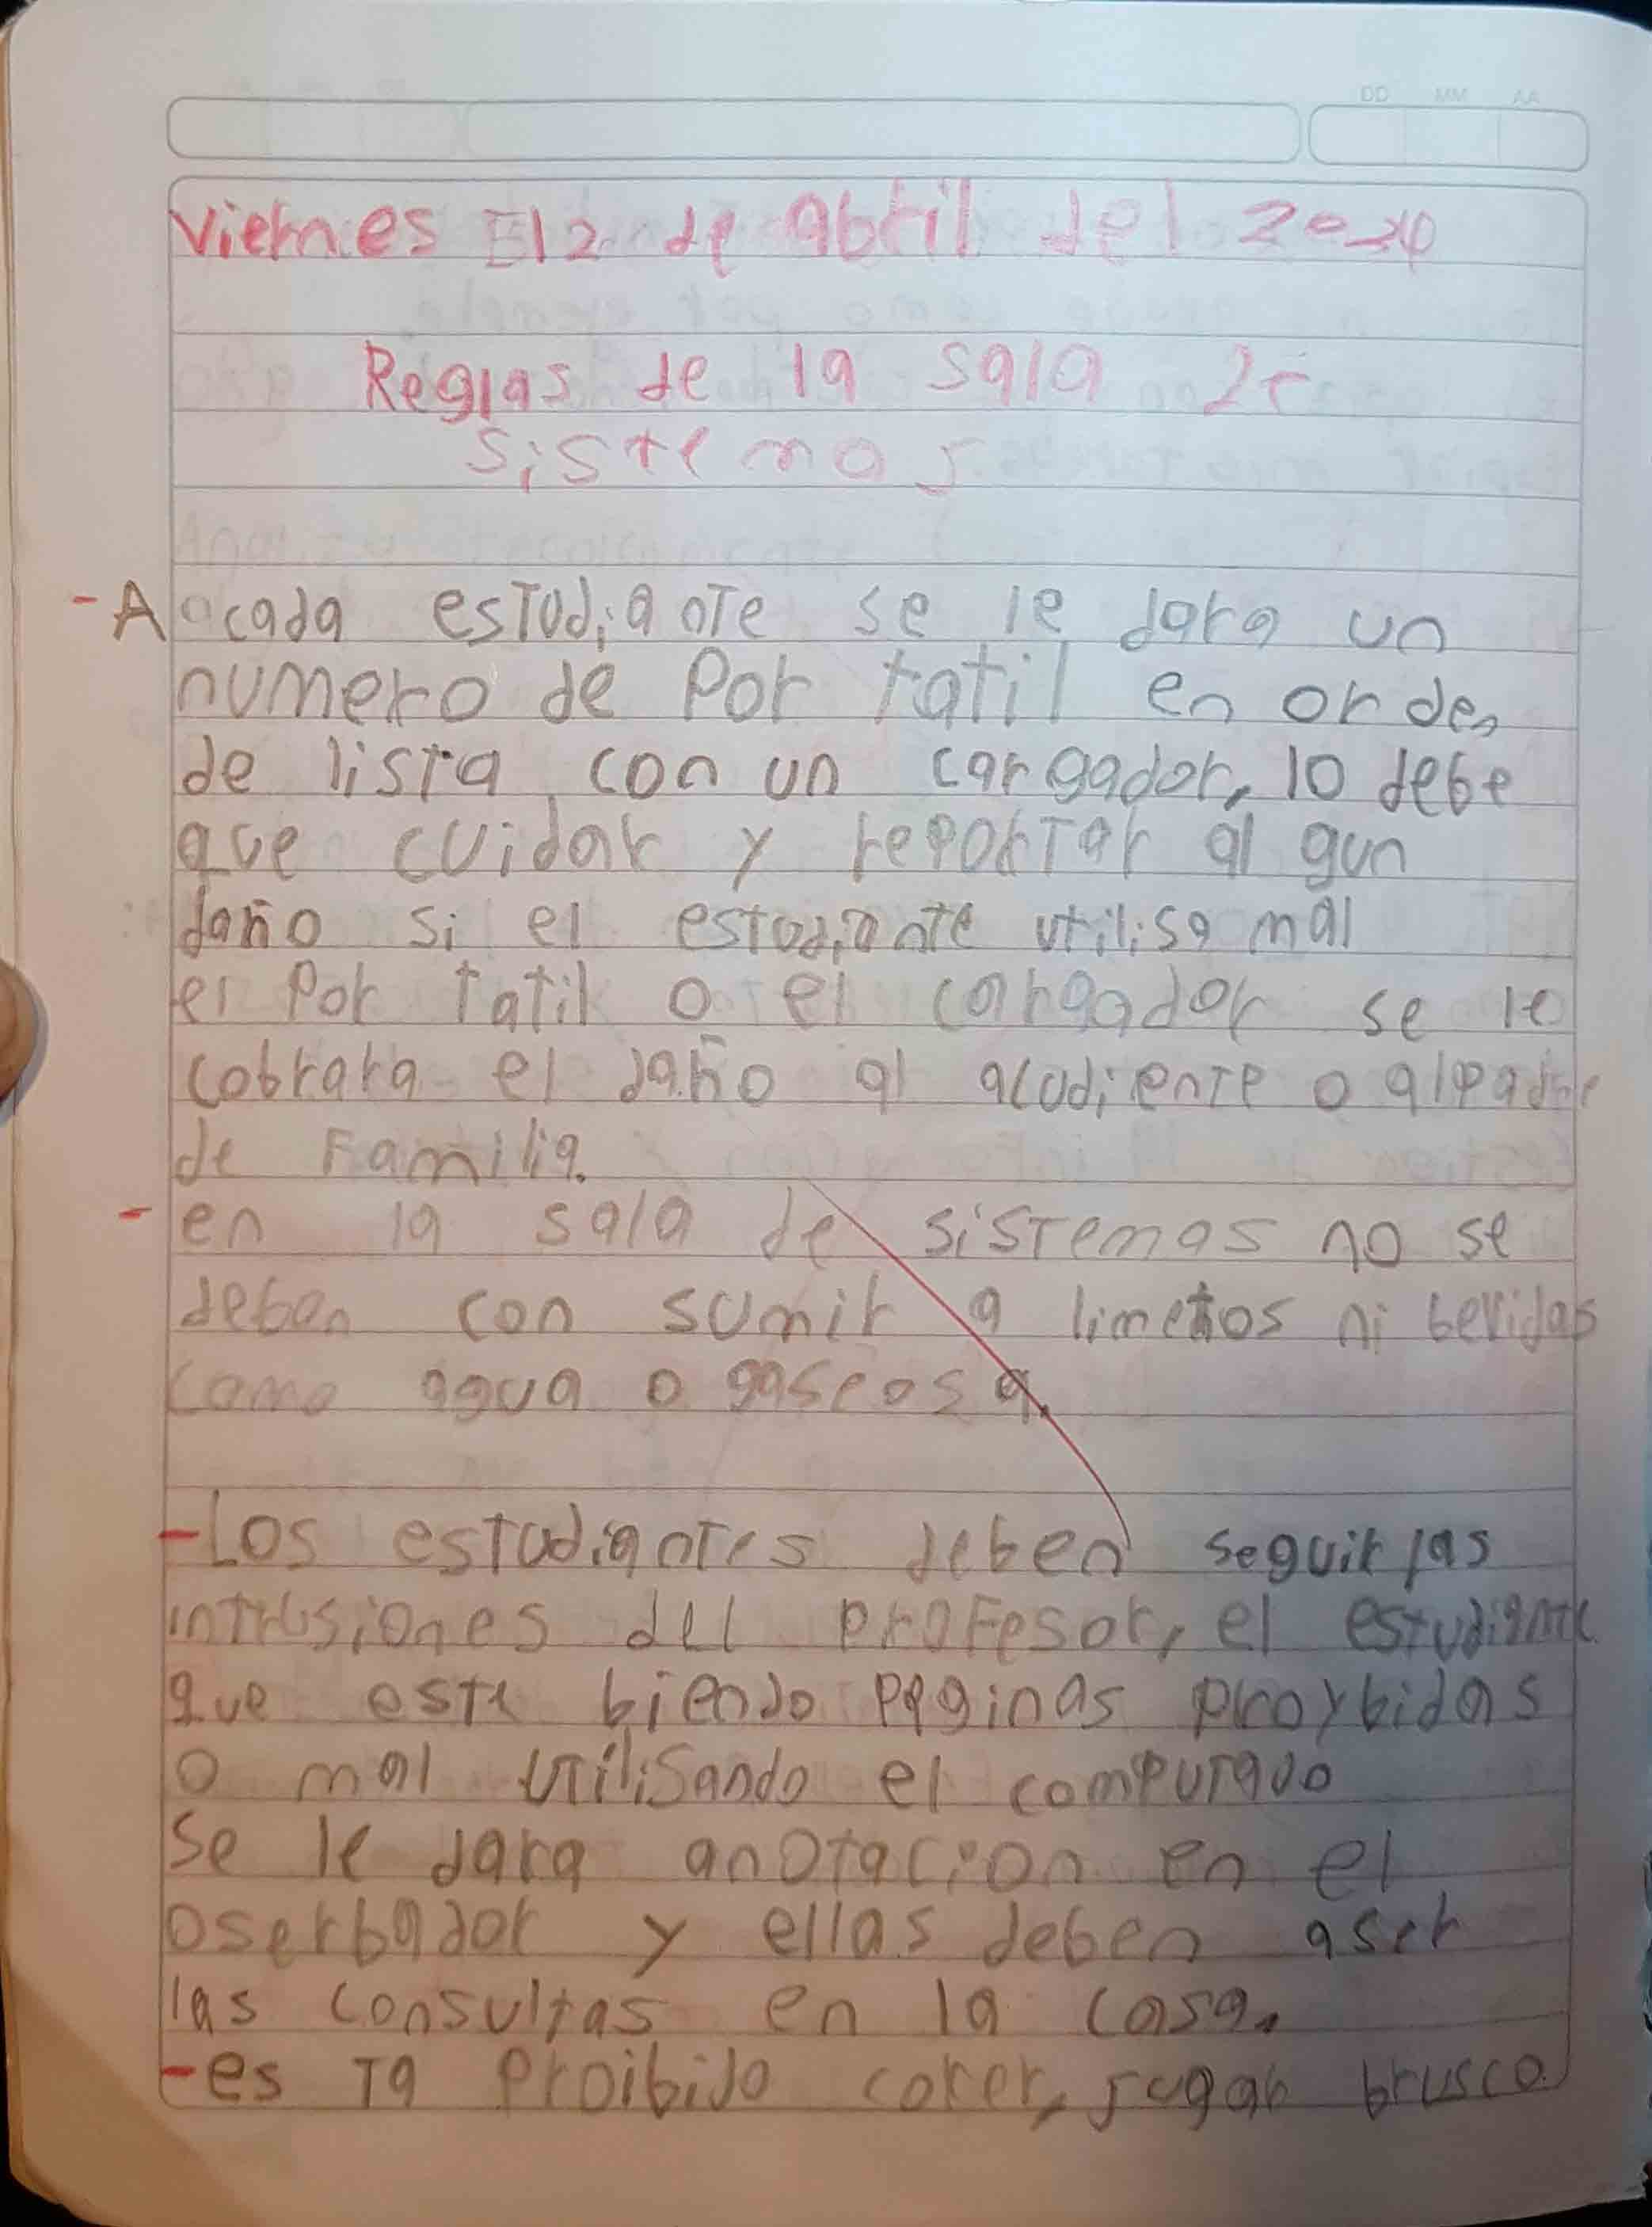 DD MM AA
Viernes El 2 de abril del 2024
Reglas de la sala de
sistemas
- A acada estudiante se le dara un
numero de Por tatil en orden
de lista con un cargador, lo debe
que cuidar y reportar al gun
daño si el estudiante utilisa mal
el Por tatil o el cargador se le
cobrara el daño al acudiente o alpadre
de Familia.
- en la sala de sistemas no se
deben con sumir a limetos ni bevidas
como agua o gaseosa.
- Los estudiantes deben seguir las
intrusiones del profesor, el estudiante
que este biendo paginas proybidas
o mal utilisando el computado
Se le dara anotacion en el
oserbador y ellas deben aser
las consultas en la casa.
- es ta proibido corer, jugar brusco